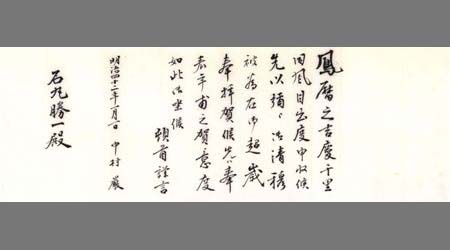 鳳暦之吉慶千里
同風目出度申収候
先以猶御清穆
被為在御超歳
奉拝賀候先奉
表年甫之賀意度
如此御坐候
頓首謹言
明治四十二年一月一日
中村巌
石丸勝一殿